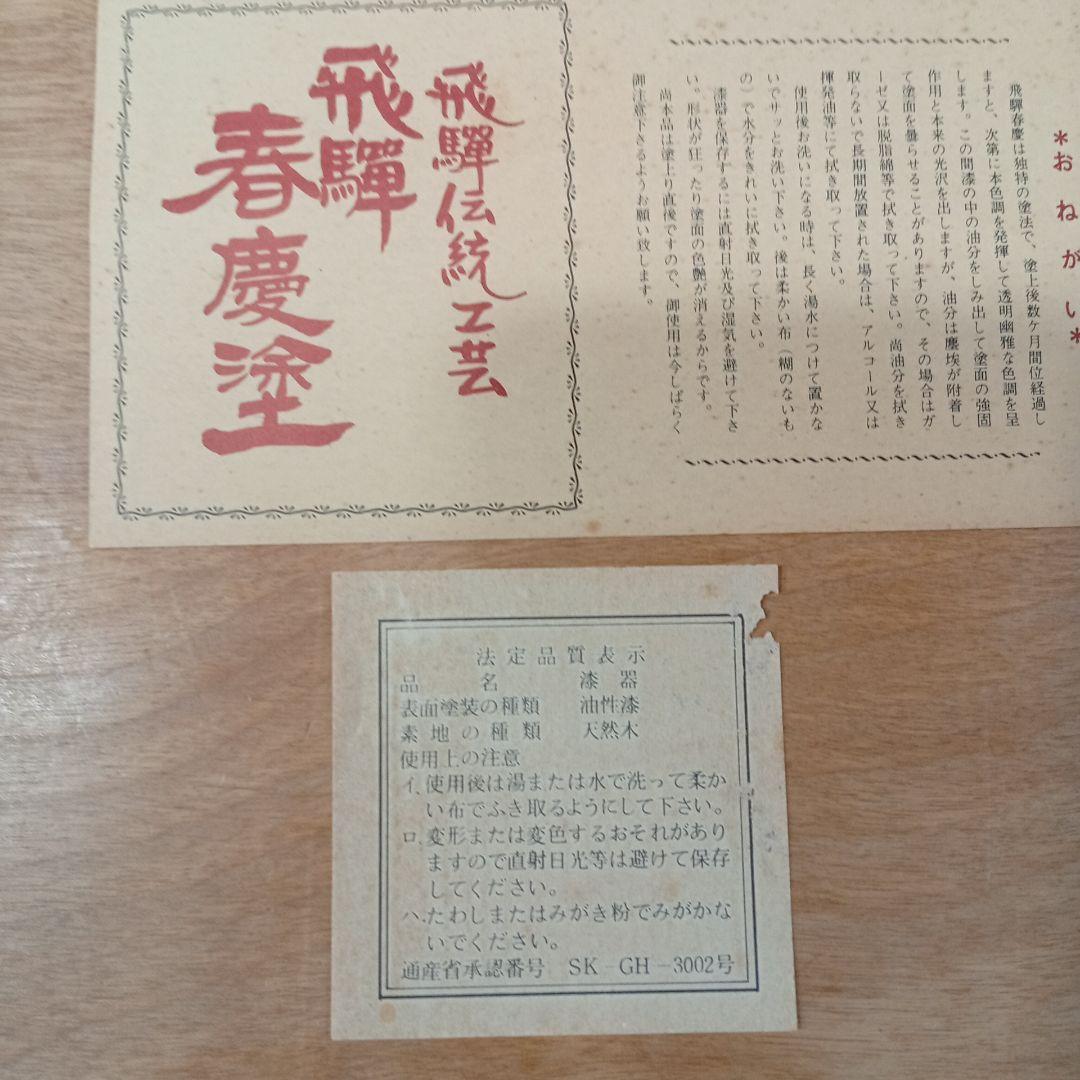 *おねがい*
飛驒春慶は独特の塗法で、塗上後数ケ月間位経過し
ますと、次第に本色調を発揮して透明幽雅な色調を呈
します。この間漆の中の油分をしみ出して塗面の強固
作用と本来の光沢を出しますが、油分は塵埃が附着し
て塗面を曇らせることがありますので、その場合はガ
ーゼ又は脱脂綿等で拭き取って下さい。尚油分を拭き
取らないで長期間放置された場合は、アルコール又は
揮発油等にて拭き取って下さい。
使用後お洗いになる時は、長く湯水につけて置かな
いでサッとお洗い下さい。後は柔かい布(糊のないも
の)で水分をきれいに拭き取って下さい。
漆器を保存するには直射日光及び湿気を避けて下さ
い。形状が狂ったり塗面の色艶が消えるからです。
尚本品は塗上り直後ですので、御使用は今しばらく
御注意下さるようお願い致します。
飛驒伝統工芸
飛驒
春慶塗
法定品質表示
品名 漆器
表面塗装の種類 油性漆
素地の種類 天然木
使用上の注意
イ.使用後は湯または水で洗って柔か
い布でふき取るようにして下さい。
ロ.変形または変色するおそれがあり
ますので直射日光等は避けて保存
してください。
ハ.たわしまたはみがき粉でみがかな
いでください。
通産省承認番号 SK-GH-3002号